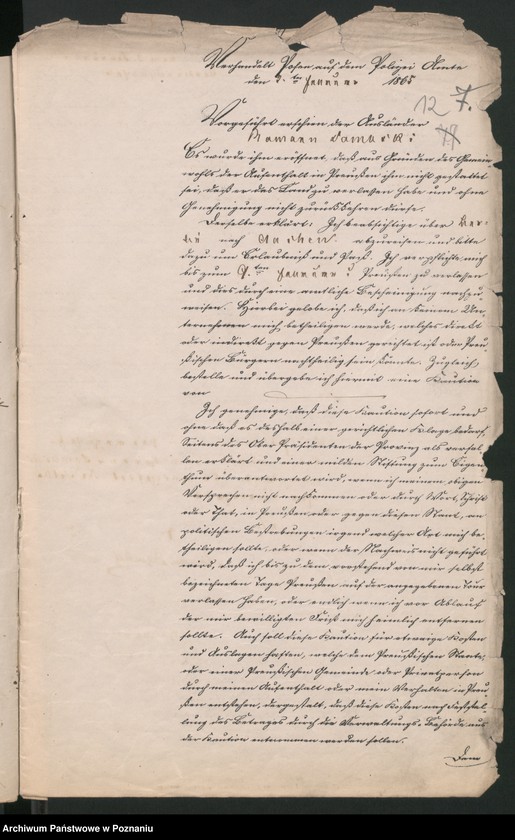 Verhandelt Posen, auf dem Polizei Amte
den 7. ten Januar 1865
12 7.
Vorgeführt erschien der Ausländer
Romann
Es wurde ihm eröffnet, daß aus Gründen des Gemein-
wohls der Aufenthalt in Preußen ihm nicht gestattet
sei, daß er das Land zu verlassen habe und ohne
Genehmigung nicht zurückkehren dürfe.
Derselbe erklärt: Ich beabsichtige über Ber-
lin nach Aachen abzureisen und bitte
dazu um Erlaubniß und Paß. Ich verpflichte mich
bis zum ten Januar Preußen zu verlassen
und dies durch eine amtliche Bescheinigung nachzu-
weisen. Hierbei gelobe ich, daß ich an keinem Un-
ternehmen mich betheiligen werde, welches direkt
oder indirekt gegen Preußen gerichtet ist oder Preu-
ßischen Bürgern nachtheilig sein könnte. Zugleich
bestelle und übergebe ich hiermit eine Kaution
von
Ich genehmige, daß diese Kaution sofort und
ohne daß es deshalb einer gerichtlichen Klage bedarf,
Seitens des Ober Präsidenten der Provinz als verfal-
len erklärt und einer milden Stiftung zum Eigen-
thum überantwortet wird, wenn ich meinem obigen
Versprechen nicht nachkommen oder durch Wort, Schrift
oder That, in Preußen oder gegen diesen Staat, an
politischen Bestrebungen irgend welcher Art mich be-
theiligen sollte, oder wenn der Nachweis nicht geführt
wird, daß ich bis zu dem vorstehend von mir selbst
bezeichneten Tage Preußen auf der angegebenen Tour
verlassen haben, oder endlich wenn ich vor Ablauf
der mir bewilligten Frist mich heimlich entfernen
sollte. Auch soll diese Kaution für etwaige Kosten
und Auslagen haften, welche dem Preußischen Staate,
oder einer Preußischen Gemeinde oder Privatperson
durch meinen Aufenthalt oder mein Verhalten in Preu-
ßen entstehen, dergestalt, daß diese Kosten nach Festel-
lung des Betrages durch die Verwaltungs-Behörde aus
der Kaution entnommen werden sollen.
Dem
Archiwum Państwowe w Poznaniu